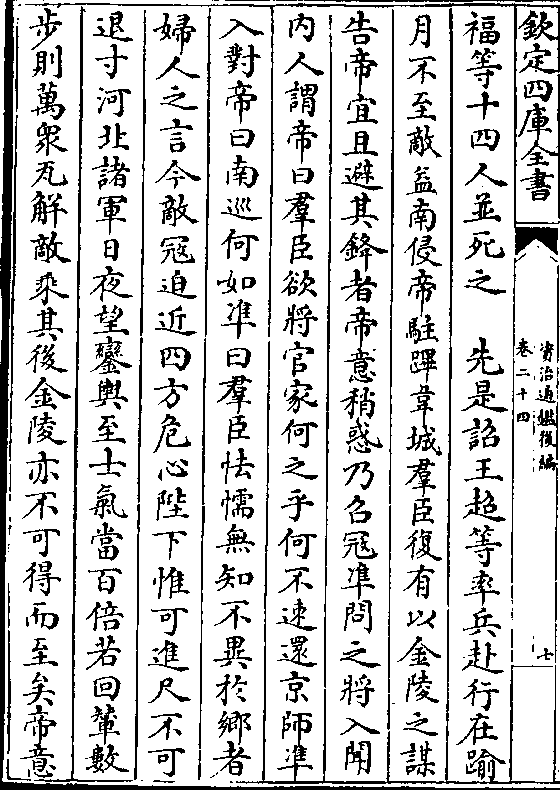 欽定四庫全書
資治通鑑後編
卷二十四
七
福等十四人並死之　先是詔王超等率兵赴行在踰
月不至敵益南侵帝駐蹕韋城羣臣復有以金陵之謀
告帝宜且避其鋒者帝意稍惑乃召冦凖問之將入聞
内人謂帝曰羣臣欲將官家何之乎何不速還京師凖
入對帝曰南巡何如凖曰羣臣怯懦無知不異於鄉者
婦人之言今敵冦迫近四方危心陛下惟可進尺不可
退寸河北諸軍日夜望鑾輿至士氣當百倍若回輦數
步則萬衆瓦解敵乘其後金陵亦不可得而至矣帝意